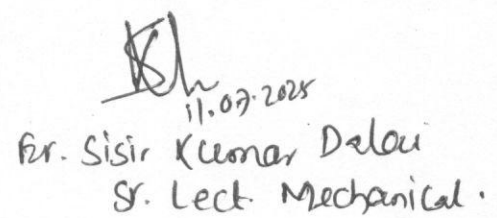 11.07.2025
Er. Sisir Kumar Dalai
Sr. Lect. Mechanical.